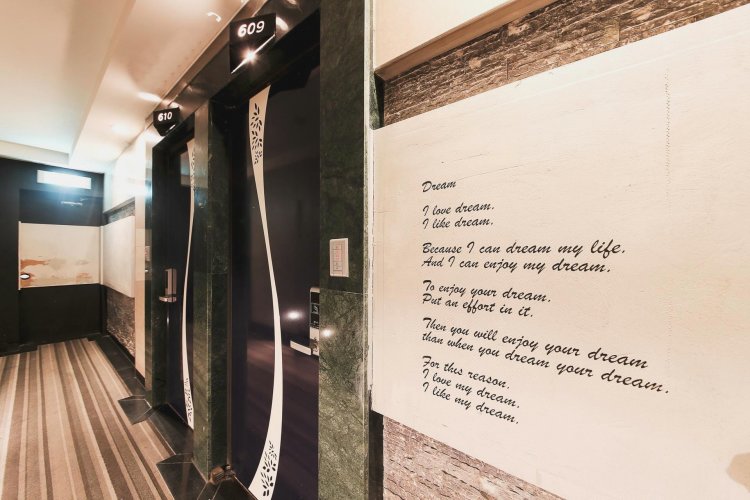 609
610
Dream
I love dream.
I like dream.
Because I can dream my life.
And I can enjoy my dream.
To enjoy your dream.
Put an effort in it.
Then you will enjoy your dream
than when you dream your dream.
For this reason.
I love my dream.
I like my dream.